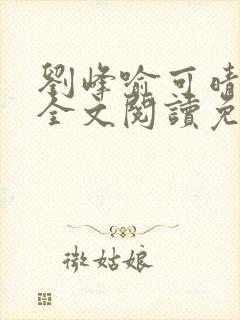 劉峰喻可晴
全文閱讀免
微姑娘